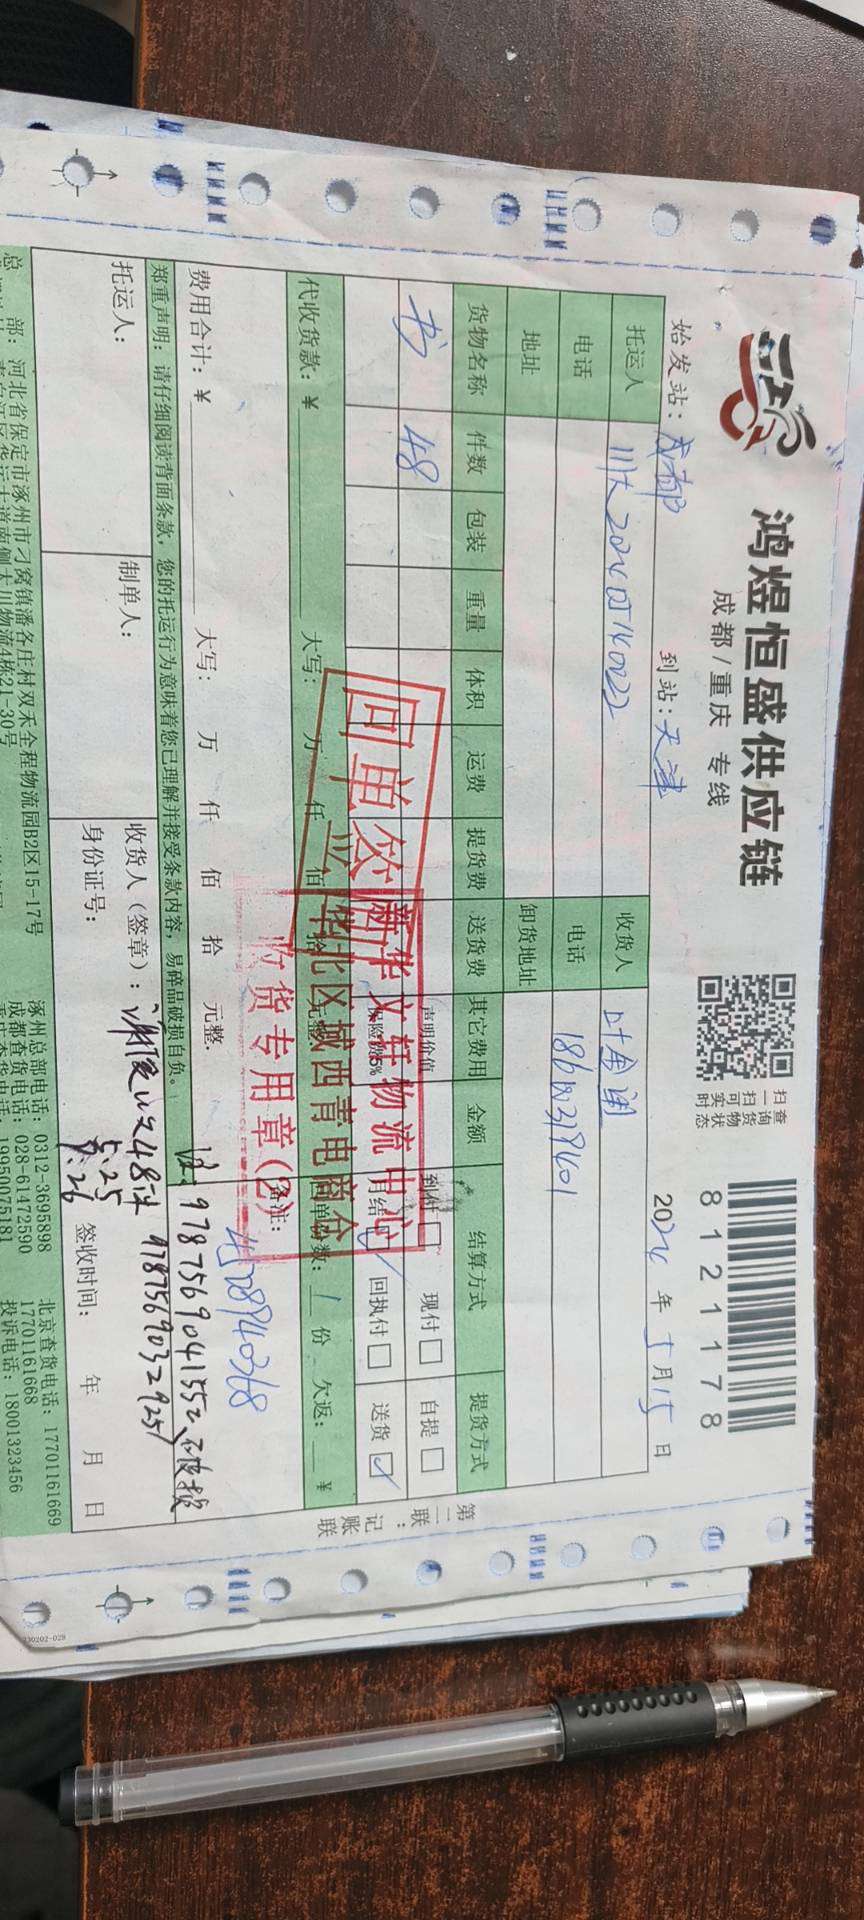 鸿煜恒盛供应链
成都/重庆 专线
扫一扫可实时
查询货物状态
8121178
始发站：成都
到站：天津
2024年5月15日
托运人 川大2024QT140222 收货人
电话 电话
地址 卸货地址
货物名称 件数 包装 重量 体积 运费 提货费 送货费 其它费用 金额 结算方式 提货方式
书 48 声明价值 到付 现付 自提
月结 回执付 送货
代收货款：¥ 大写： 万 仟 佰 拾 元整 回单份数：1份 欠返： ¥
费用合计：¥ 大写： 万 仟 佰 拾 元整. 备注：
4528940368
回单签
新华文轩物流中心
华北区域西青电商仓
收货专用章(2)
郑重声明：请仔细阅读背面条款，您的托运行为意味着您已理解并接受条款内容，易碎品破损自负。
注：9787569041552
9787569032925
托运人： 制单人： 收货人（签章）：
5.25
5.26
身份证号： 签收时间： 年 月 日
总 部：河北省保定市涿州市刁窝镇潘各庄村双禾全程物流园B2区15-17号 涿州总部电话：0312-3695898 北京查货电话：17701161669
成都查货电话：028-61472590 17701161668
19950075181 投诉电话：18001323456
第二联：记账联